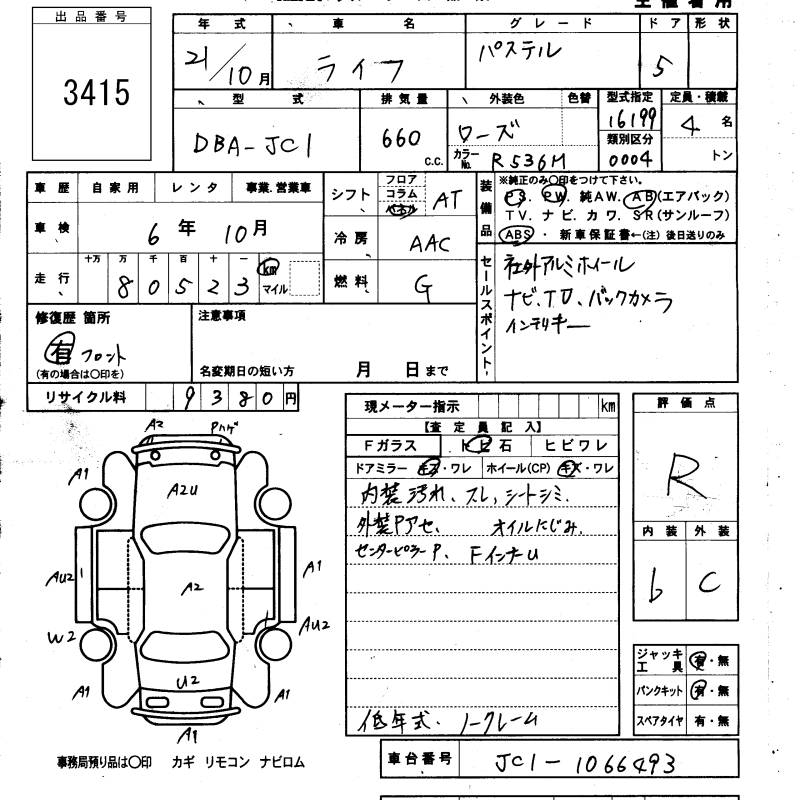 出品番号
3415
年式 車名 グレード ドア 形状
21/10月 ライフ パステル 5
型式 排気量 外装色 色替 型式指定 定員・積載
DBA-JC1 660 c.c. ローズ 16199 4名
類別区分
カラーNo. R536M 0004 トン
車歴 自家用 レンタ 事業.営業車
シフト フロア コラム パネル AT
装備品
※純正のみ〇印をつけて下さい。
PS. PW. 純AW. AB(エアバック)
TV. ナビ. カワ. SR(サンルーフ)
ABS・新車保証書←(注)後日送りのみ
車検 6年 10月
冷房 AAC
走行 十万 万 千 百 十 一
80523 km マイル
燃料 G
セールスポイント
社外アルミホイール
ナビ、TV、バックカメラ
インテリキー
修復歴 箇所
有 フロント
(有の場合は〇印を)
注意事項
名変期日の短い方 月 日まで
リサイクル料 9380円
現メーター指示 km
【査定員記入】
Fガラス トビ石 ヒビワレ
ドアミラー キズ・ワレ ホイール(CP) キズ・ワレ
内装汚れ、スレ、シートシミ.
外装Pアセ、 オイルにじみ.
センターピラーP、 FインナU
低年式. ノークレーム
評価点
R
内装 外装
b C
ジャッキ工具 有・無
パンクキット 有・無
スペアタイヤ 有・無
A2 Pハゲ
A1
A2U
AU2 A2 A1
W2 AU2
U2
A1 A1
A1
事務局預り品は〇印 カギ リモコン ナビロム
車台番号 JC1-1066493